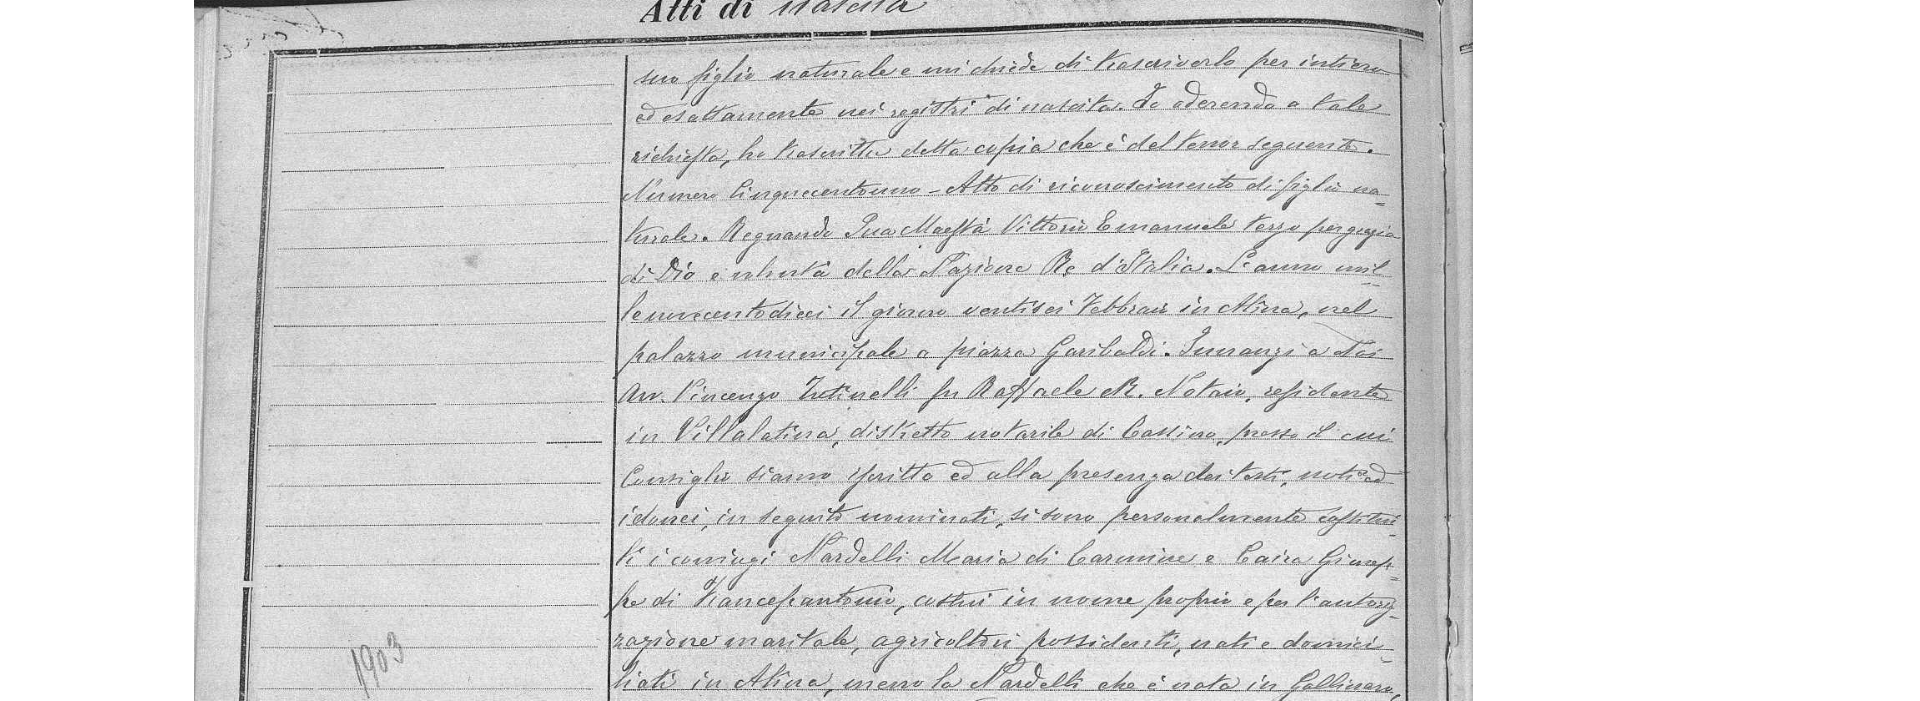 Atti di nascita
suo figlio naturale e mi chiede di trascriverlo per intiero
ed esattamente nei registri di nascita. Io aderendo a tale
richiesta, ho trascritto detta copia che è del tenor seguente.
Numero Cinquecentouno - Atto di riconoscimento di figlio na-
turale. Regnando Sua Maestà Vittorio Emanuele terzo per grazia
di Dio e volontà della Nazione Re d'Italia. L'anno mil-
lenovecentodieci il giorno ventisei Febbraio in Atina, nel
palazzo municipale a piazza Garibaldi. Innanzi a Noi
Avv. Vincenzo Tutinelli fu Raffaele R. Notaio, residente
in Villalatina, distretto notarile di Cassino, presso il cui
Consiglio siamo iscritto ed alla presenza dei testi, noti ed
idonei, in seguito nominati, si sono personalmente costitui-
ti i coniugi Nardelli Maria di Carmine e Caira Giusep-
pe di Francescantonio, costui in nome proprio e per l'autoriz-
zazione maritale, agricoltori possidenti, nati e domici-
liati in Atina, meno la Nardelli che è nata in Gallinaro,
1903